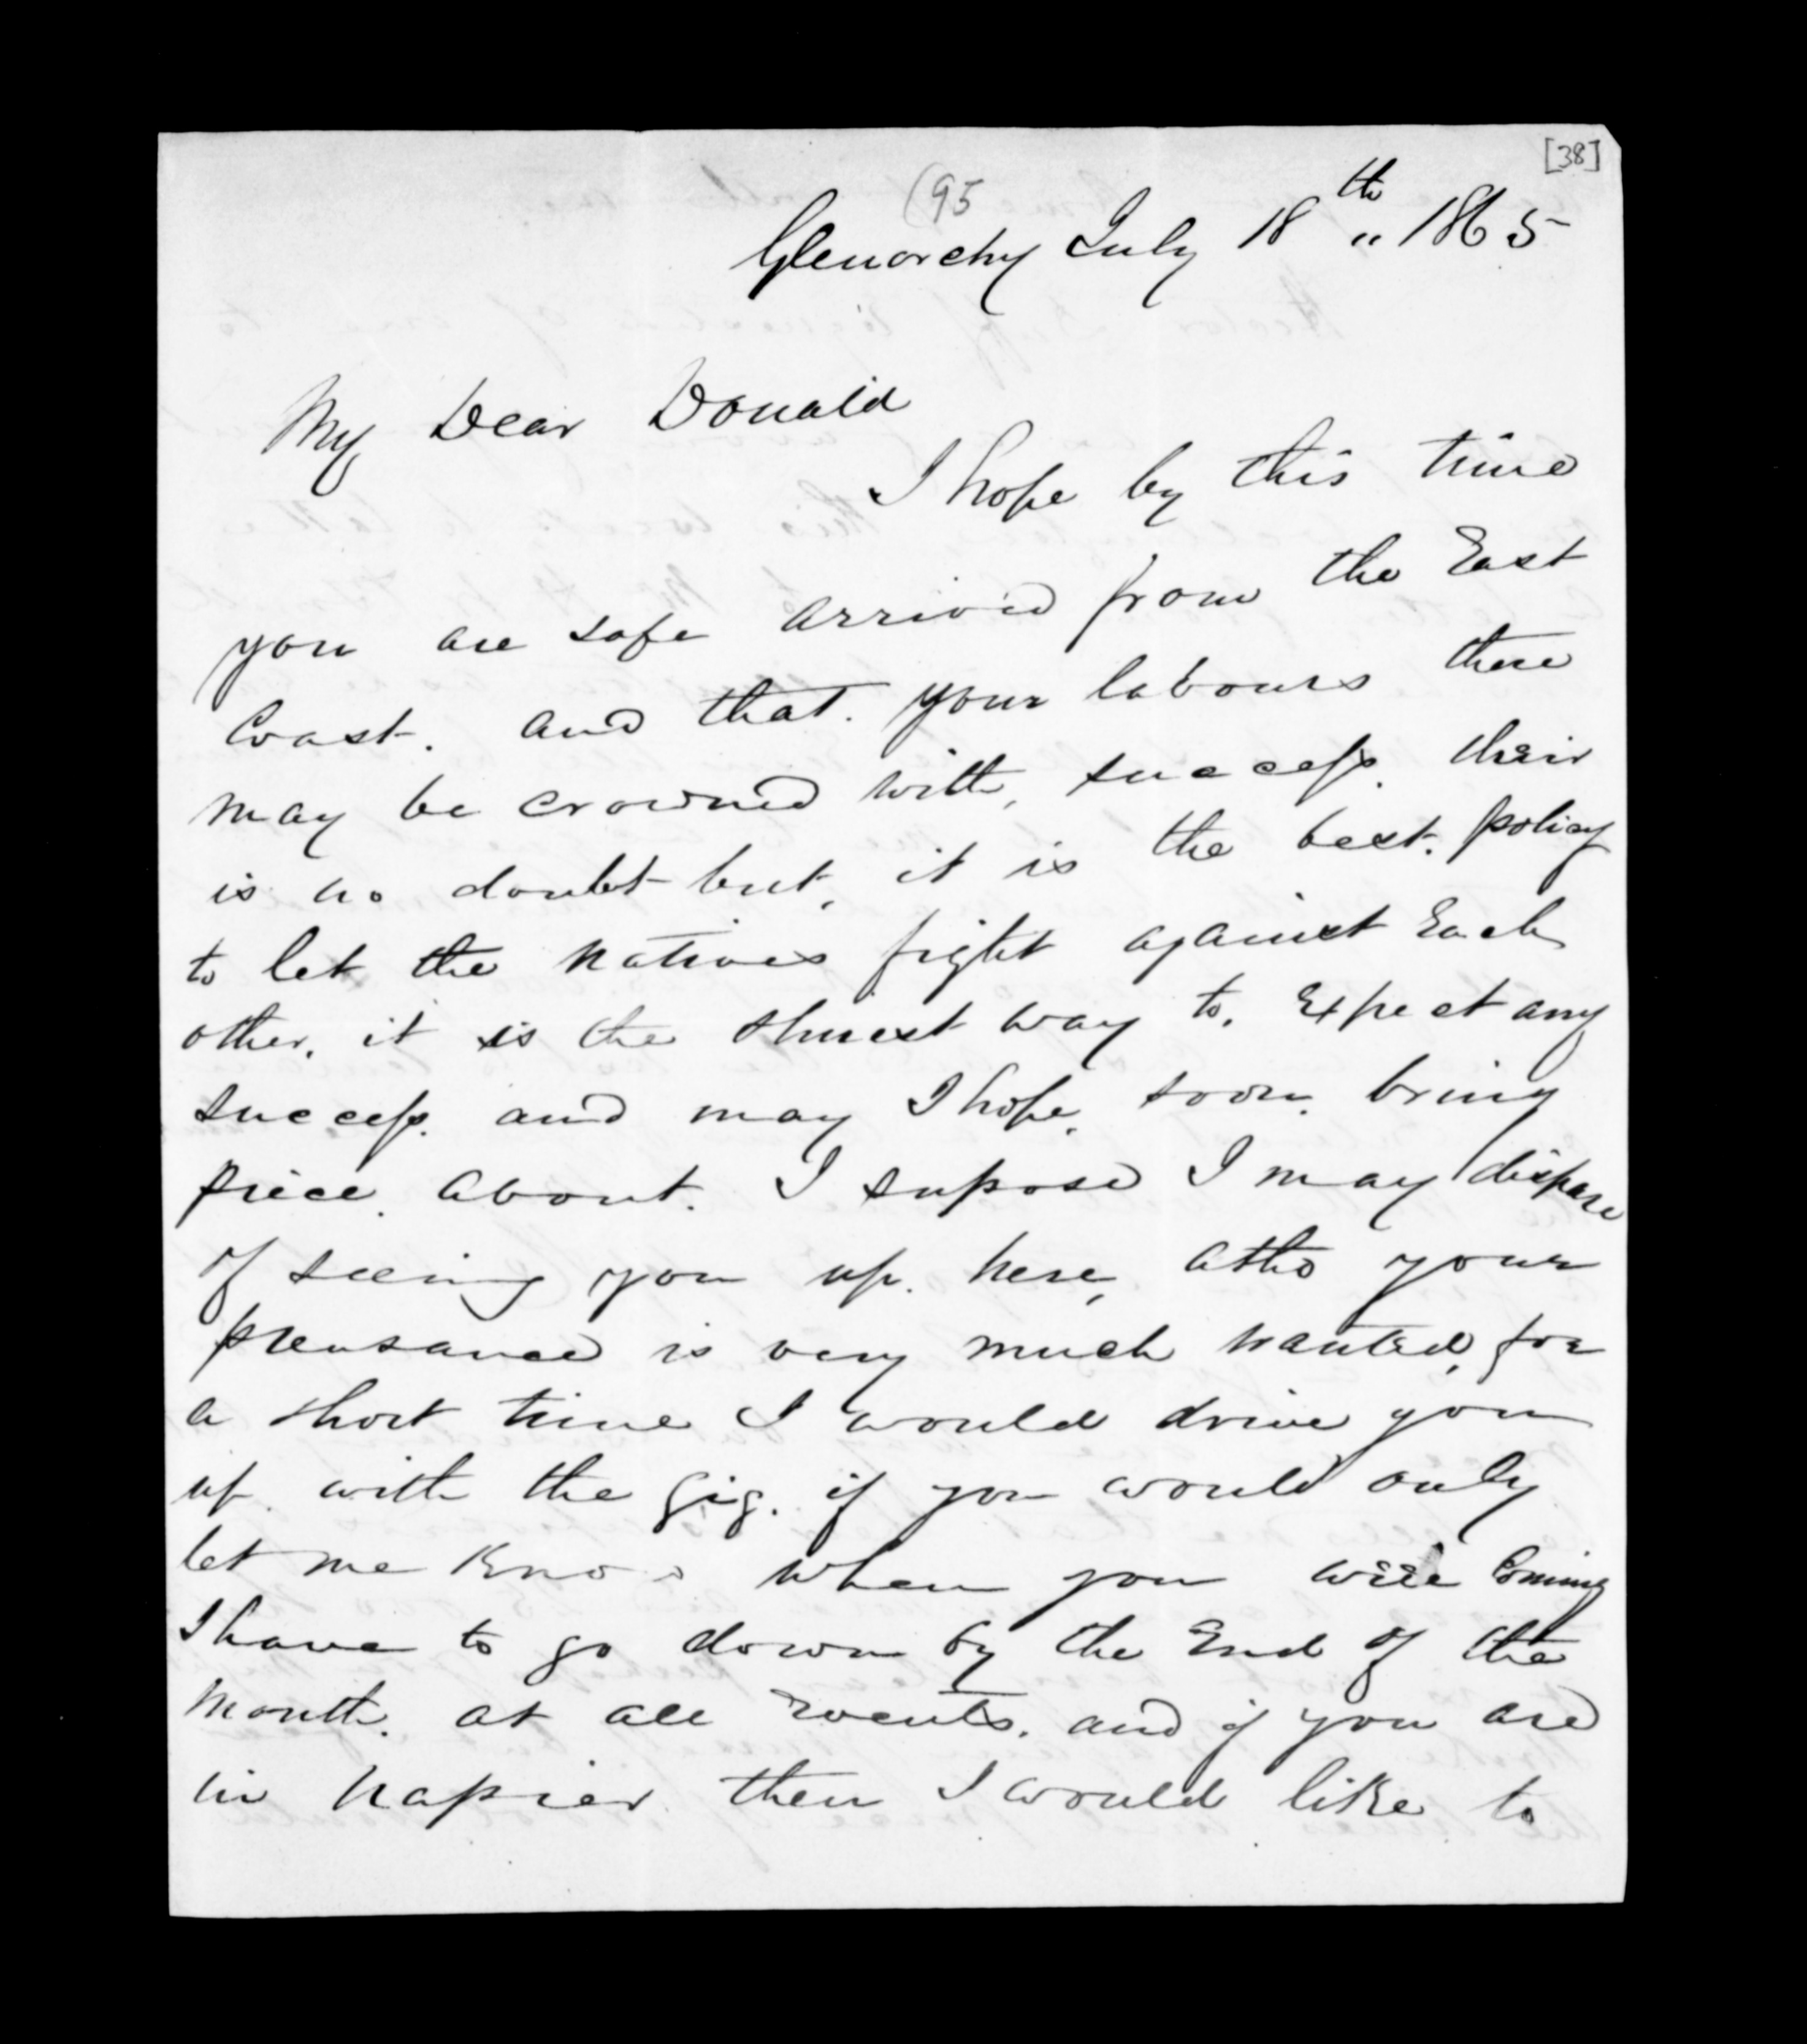 [38]
(95
Glenorchy July 18th „ 1865
My Dear Donald
I hope by this time
you are safe arrived from the East
Coast. and that. your labours there
may be crowned with, success. their
is no doubt but, it is the best. policy
to let the natives fight against Each
other. it is the shurest way to. Expect any
success. and may I hope. soon. bring
piece. about. I supose I may dispare
of seeing you up. here, altho your
preasance is very much wanted, for
a short time I would drive you
up. with the gig. if you would only
let me know when you will Coming
I have to go down by the End of the
month. at all Events. and if you are
in Napier then I would like to